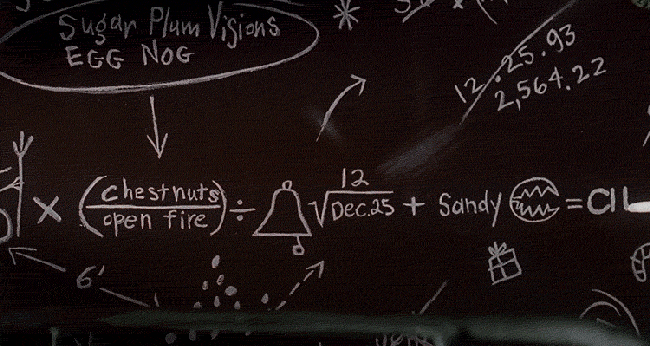 Sugar Plum Visions
EGG NOG
12.25.93
2,564.22
x (chestnuts
open fire) ÷ 12
√Dec.25 + Sandy = CIL
6'